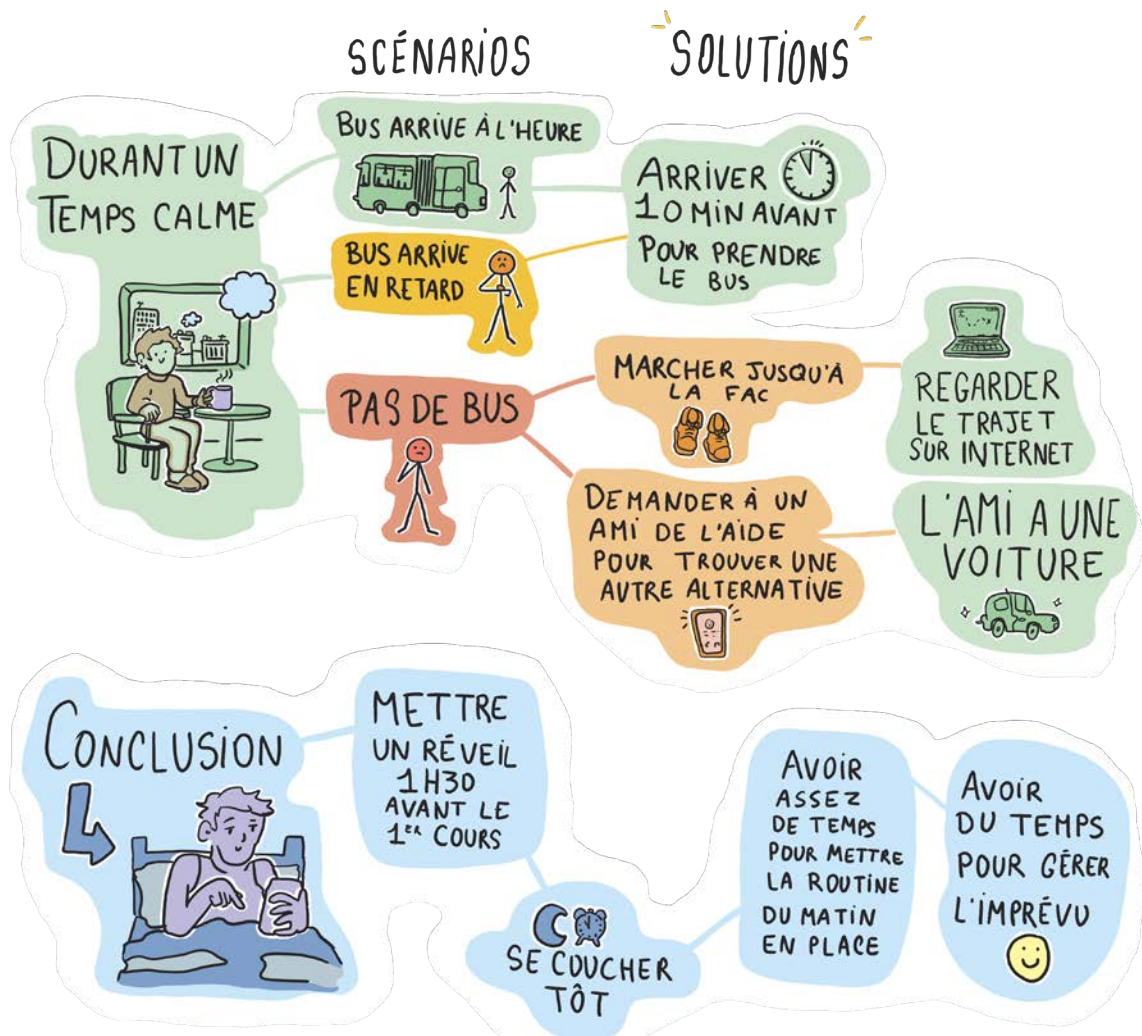 SCÉNARIOS
SOLUTIONS
DURANT UN
TEMPS CALME
BUS ARRIVE À L'HEURE
ARRIVER
10 MIN AVANT
POUR PRENDRE
LE BUS
BUS ARRIVE
EN RETARD
PAS DE BUS
MARCHER JUSQU'À
LA FAC
REGARDER
LE TRAJET
SUR INTERNET
DEMANDER À UN
AMI DE L'AIDE
POUR TROUVER UNE
AUTRE ALTERNATIVE
L'AMI A UNE
VOITURE
CONCLUSION
METTRE
UN RÉVEIL
1H30
AVANT LE
1ER COURS
SE COUCHER
TÔT
AVOIR
ASSEZ
DE TEMPS
POUR METTRE
LA ROUTINE
DU MATIN
EN PLACE
AVOIR
DU TEMPS
POUR GÉRER
L'IMPRÉVU